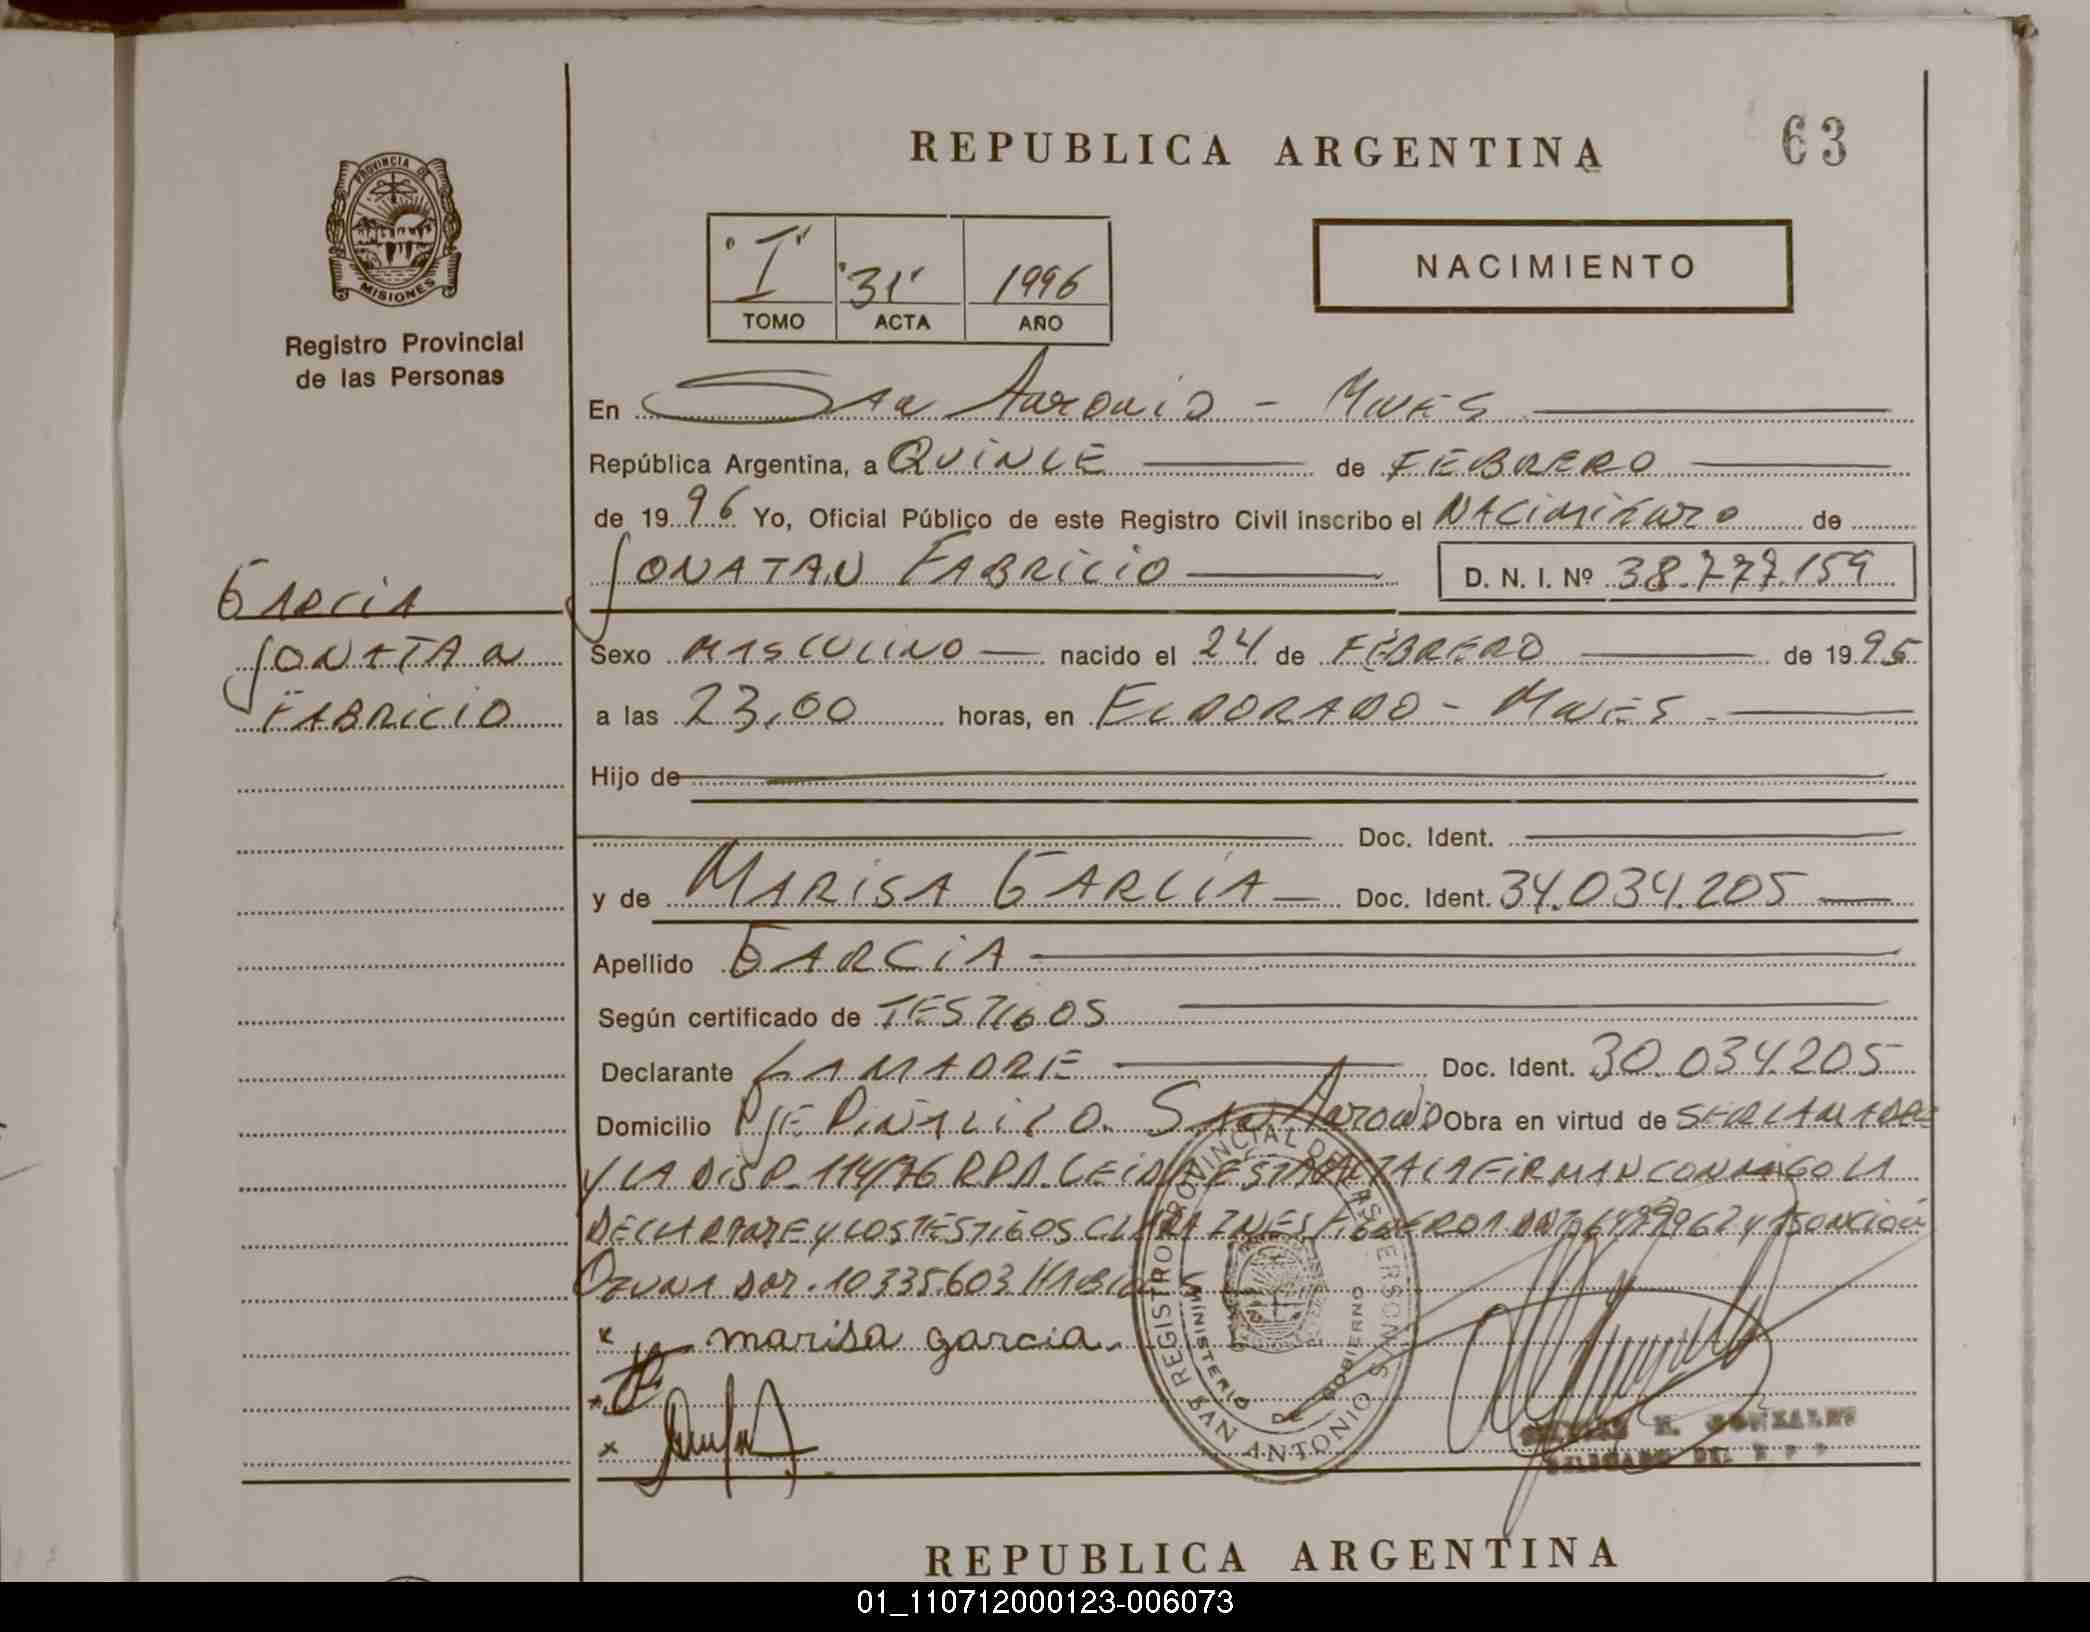 REPUBLICA ARGENTINA
63
PROVINCIA DE
MISIONES
Registro Provincial
de las Personas
"I" "31" 1996
TOMO ACTA AÑO
NACIMIENTO
En San Antonio - Mnes
República Argentina, a QUINCE de FEBRERO
de 1996 Yo, Oficial Público de este Registro Civil inscribo el NACIMIENTO de
JONATAN FABRICIO D. N. I. Nº 38.777.159
GARCIA
JONATAN
FABRICIO
Sexo MASCULINO nacido el 24 de FEBRERO de 1995
a las 23,00 horas, en ELDORADO - MNES
Hijo de
Doc. Ident.
y de MARISA GARCIA Doc. Ident. 34.034.205
Apellido GARCIA
Según certificado de TESTIGOS
Declarante LA MADRE Doc. Ident. 30.034.205
Domicilio PJE PIÑALITO. SAN ANTONIO Obra en virtud de SER LA MADRE
Y LA DISP. 114/76 R.P.P. LEIDA ESTA ACTA LA FIRMAN CONMIGO LA
DECLARANTE Y LOS TESTIGOS CLARA INES Y ASONCION
OZUNA DNI. 10335.603
x marisa garcia.
x
x
REGISTRO PROVINCIAL DE LAS PERSONAS
MINISTERIO DE GOBIERNO
SAN ANTONIO
E. GONZALEZ
DELEGADO DEL R P P
REPUBLICA ARGENTINA
01_110712000123-006073